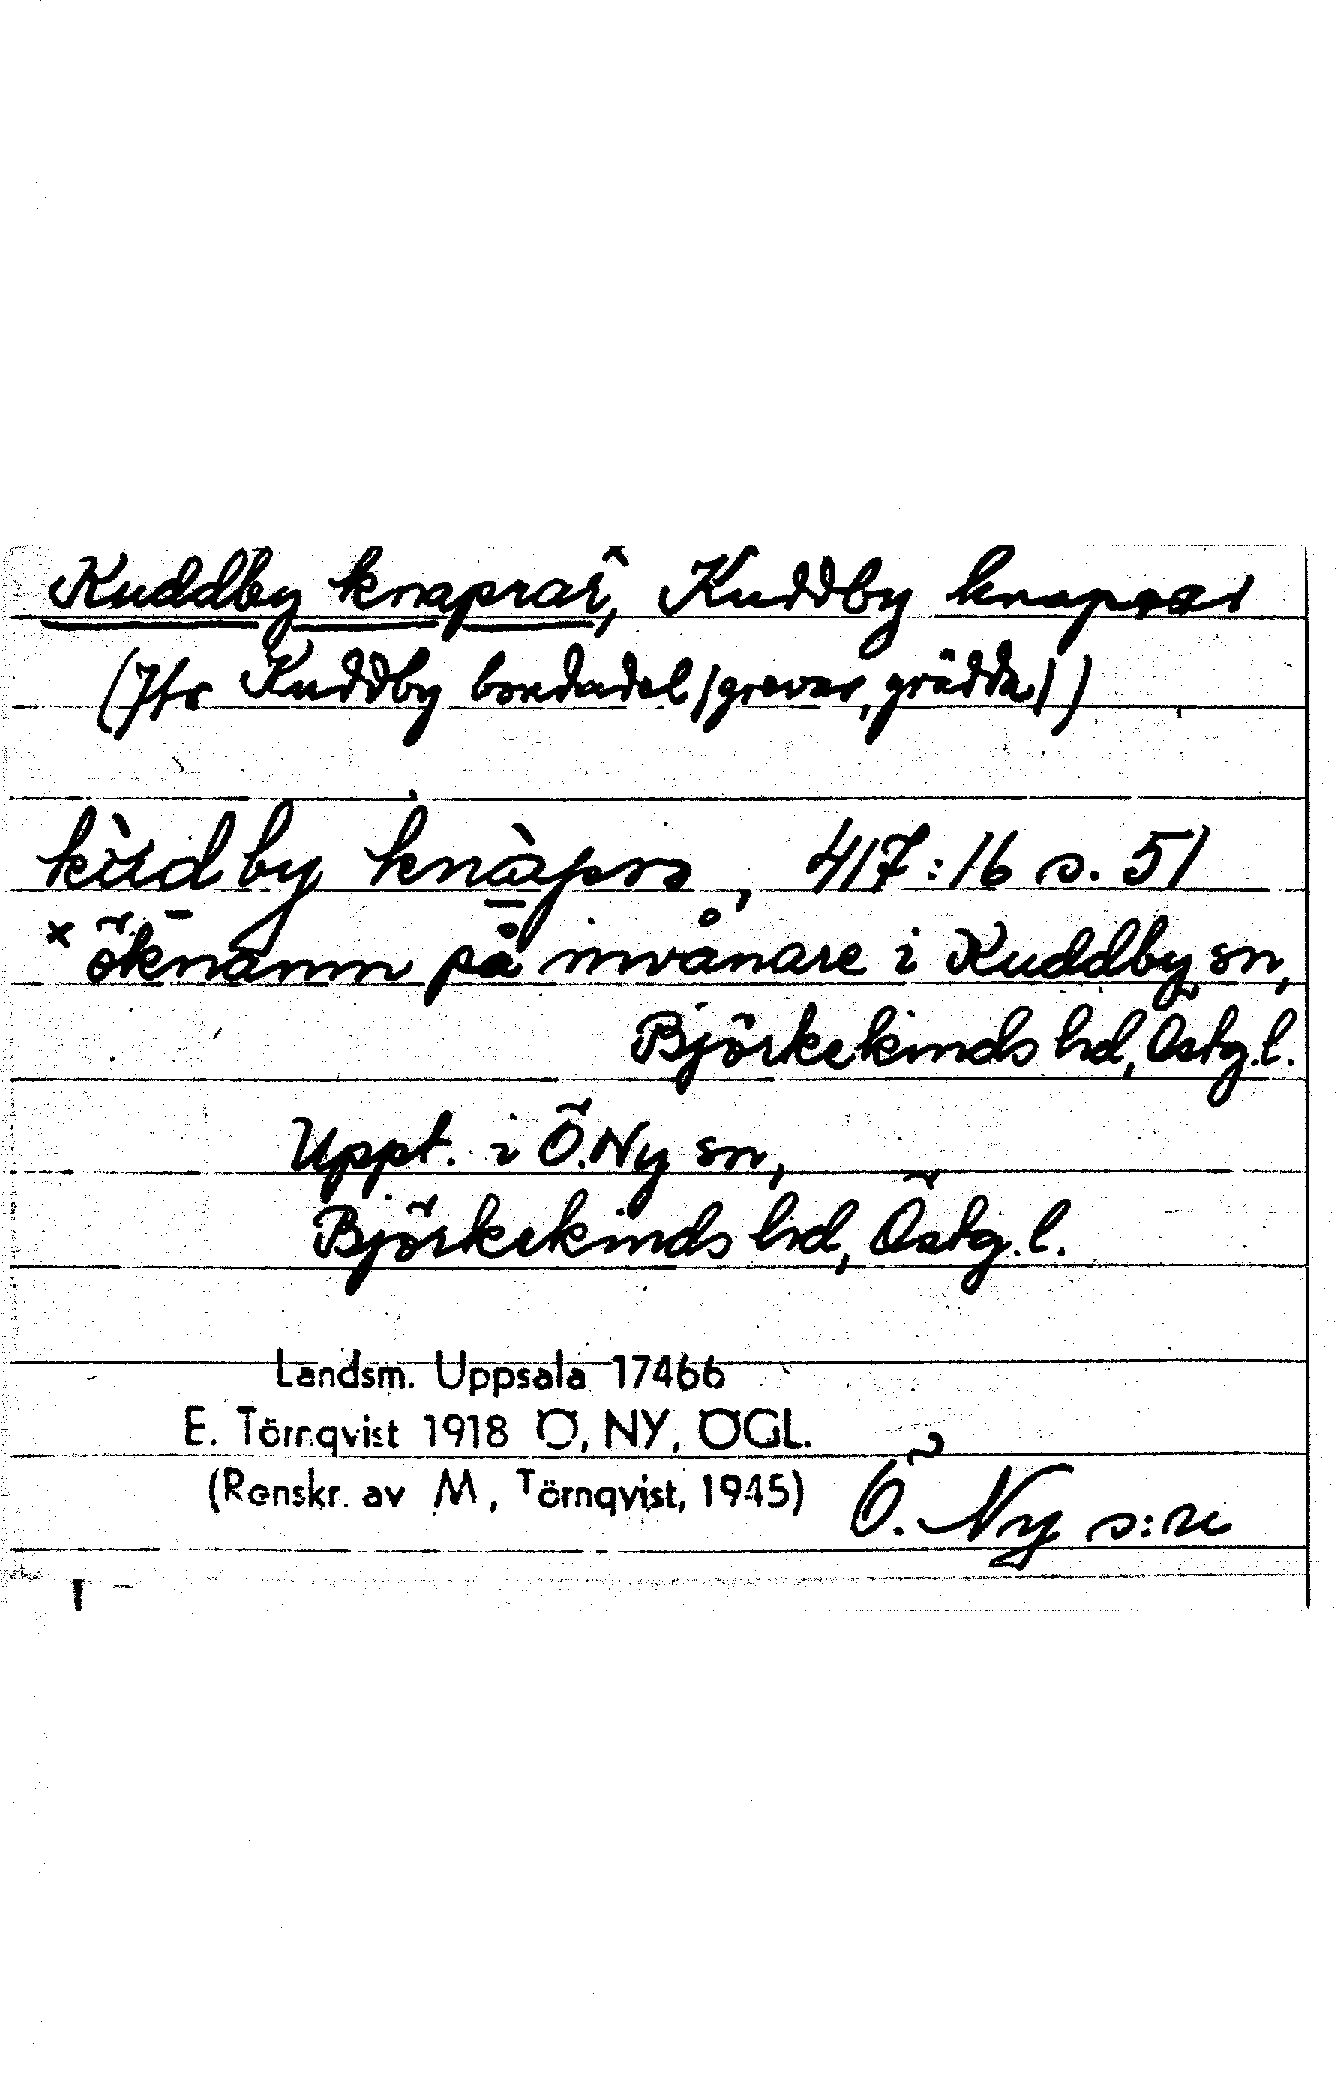 Kuddby knaprar, Kuddby knaprar
(Jfr Kuddby bondadel (grevar, grädda))
kùdby knàprs, 417:16 s. 51
× öknamn på invånare i Kuddby sn,
Björkekinds hd, Östg.l.
Uppt. i Ö.Ny sn,
Björkekinds hd, Östg.l.
Landsm. Uppsala 17466
E. Törnqvist 1918 Ö, NY, ÖGL.
(Renskr. av M, Törnqvist, 1945)
Ö. Ny s:n